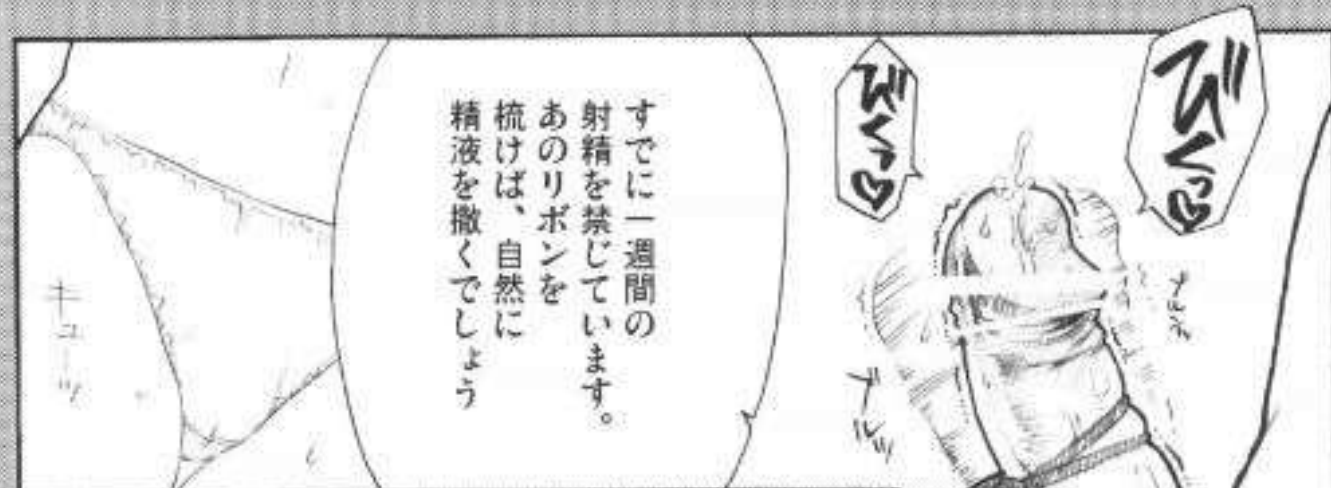 びくっ♡
びくっ♡
すでに一週間の
射精を禁じています。
あのリボンを
梳けば、自然に
精液を撒くでしょう
キューッ